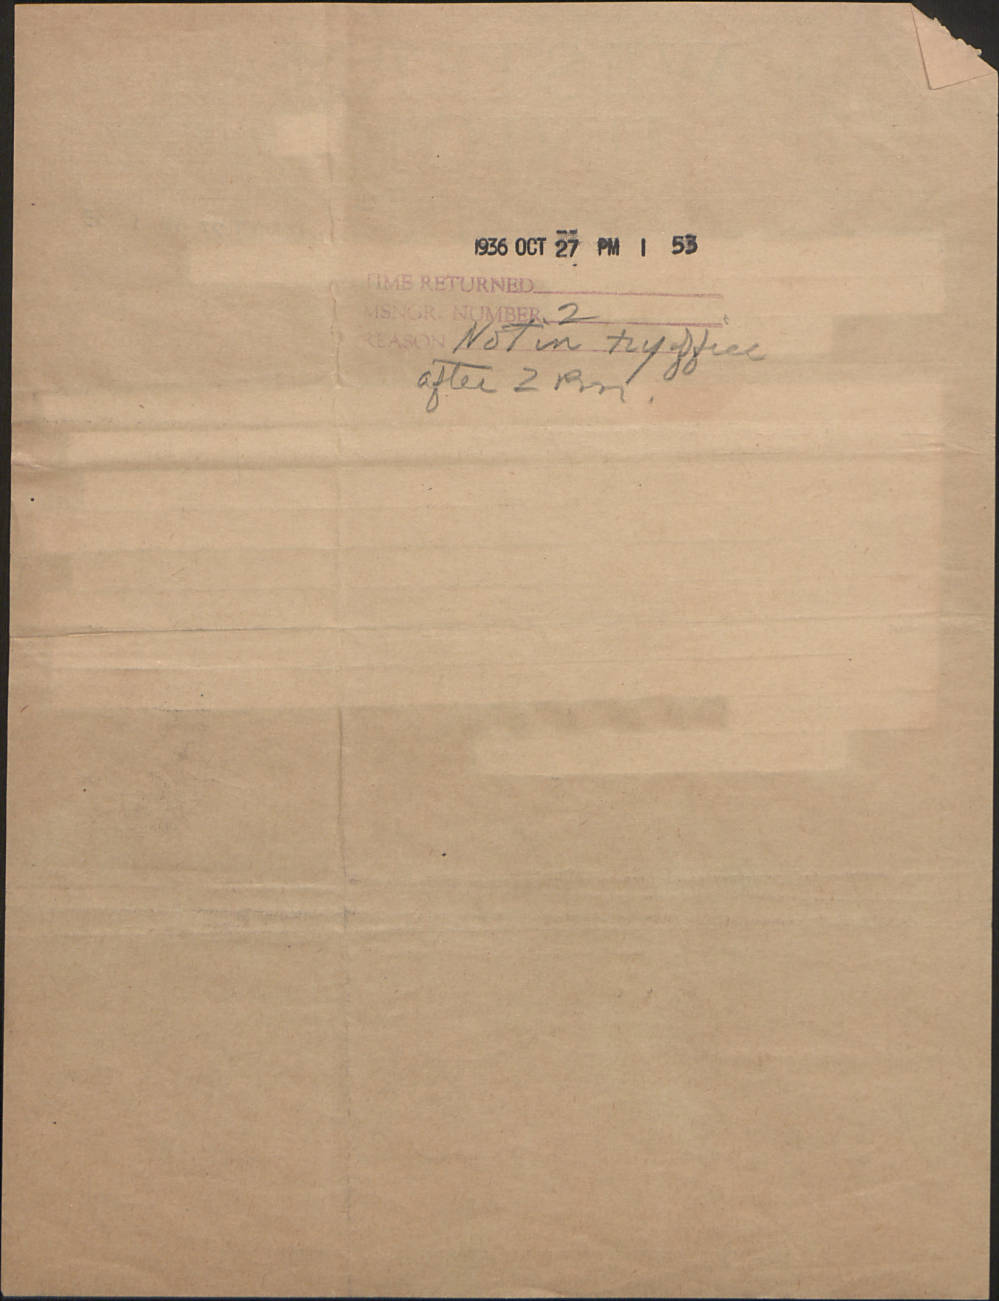 1936 OCT 27 PM 1 53
TIME RETURNED
MSNGR. NUMBER 2
REASON Not in try office
after 2 Pm.